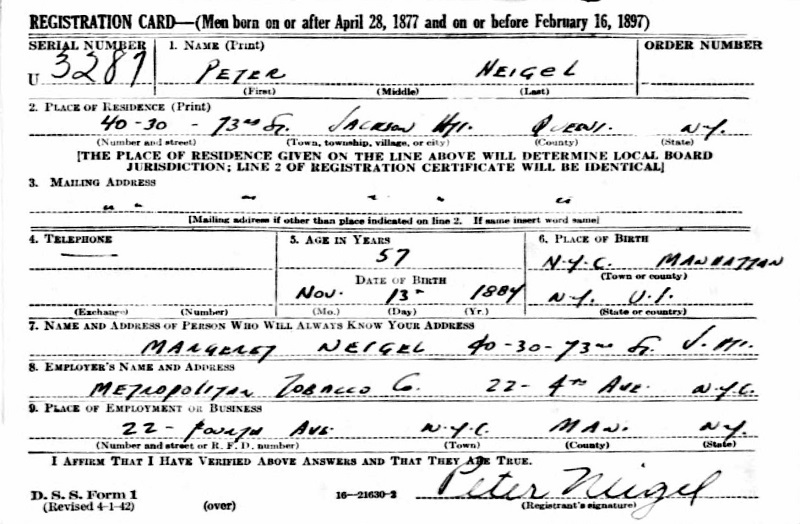 REGISTRATION CARD—(Men born on or after April 28, 1877 and on or before February 16, 1897)
SERIAL NUMBER 1. NAME (Print) ORDER NUMBER
U 3287 PETER NEIGEL
(First) (Middle) (Last)
2. PLACE OF RESIDENCE (Print)
40-30 - 73RD ST. JACKSON HTS. QUEENS. N.Y.
(Number and street) (Town, township, village, or city) (County) (State)
[THE PLACE OF RESIDENCE GIVEN ON THE LINE ABOVE WILL DETERMINE LOCAL BOARD
JURISDICTION; LINE 2 OF REGISTRATION CERTIFICATE WILL BE IDENTICAL]
3. MAILING ADDRESS
" " " " " "
[Mailing address if other than place indicated on line 2. If same insert word same]
4. TELEPHONE 5. AGE IN YEARS 6. PLACE OF BIRTH
— 57 N.Y.C. MANHATTAN
DATE OF BIRTH (Town or county)
NOV. 13TH 1884 N.Y. U.S.
(Exchange) (Number) (Mo.) (Day) (Yr.) (State or country)
7. NAME AND ADDRESS OF PERSON WHO WILL ALWAYS KNOW YOUR ADDRESS
MARGERET NEIGEL 40-30-73RD ST. J. HTS.
8. EMPLOYER'S NAME AND ADDRESS
METROPOLITAN TOBACCO CO. 22- 4TH AVE. N.Y.C.
9. PLACE OF EMPLOYMENT OR BUSINESS
22- FOURTH AVE. N.Y.C. MAN. N.Y.
(Number and street or R. F. D. number) (Town) (County) (State)
I AFFIRM THAT I HAVE VERIFIED ABOVE ANSWERS AND THAT THEY ARE TRUE.
D. S. S. Form 1 16—21630-2 Peter Neigel
(Revised 4-1-42) (over) (Registrant's signature)